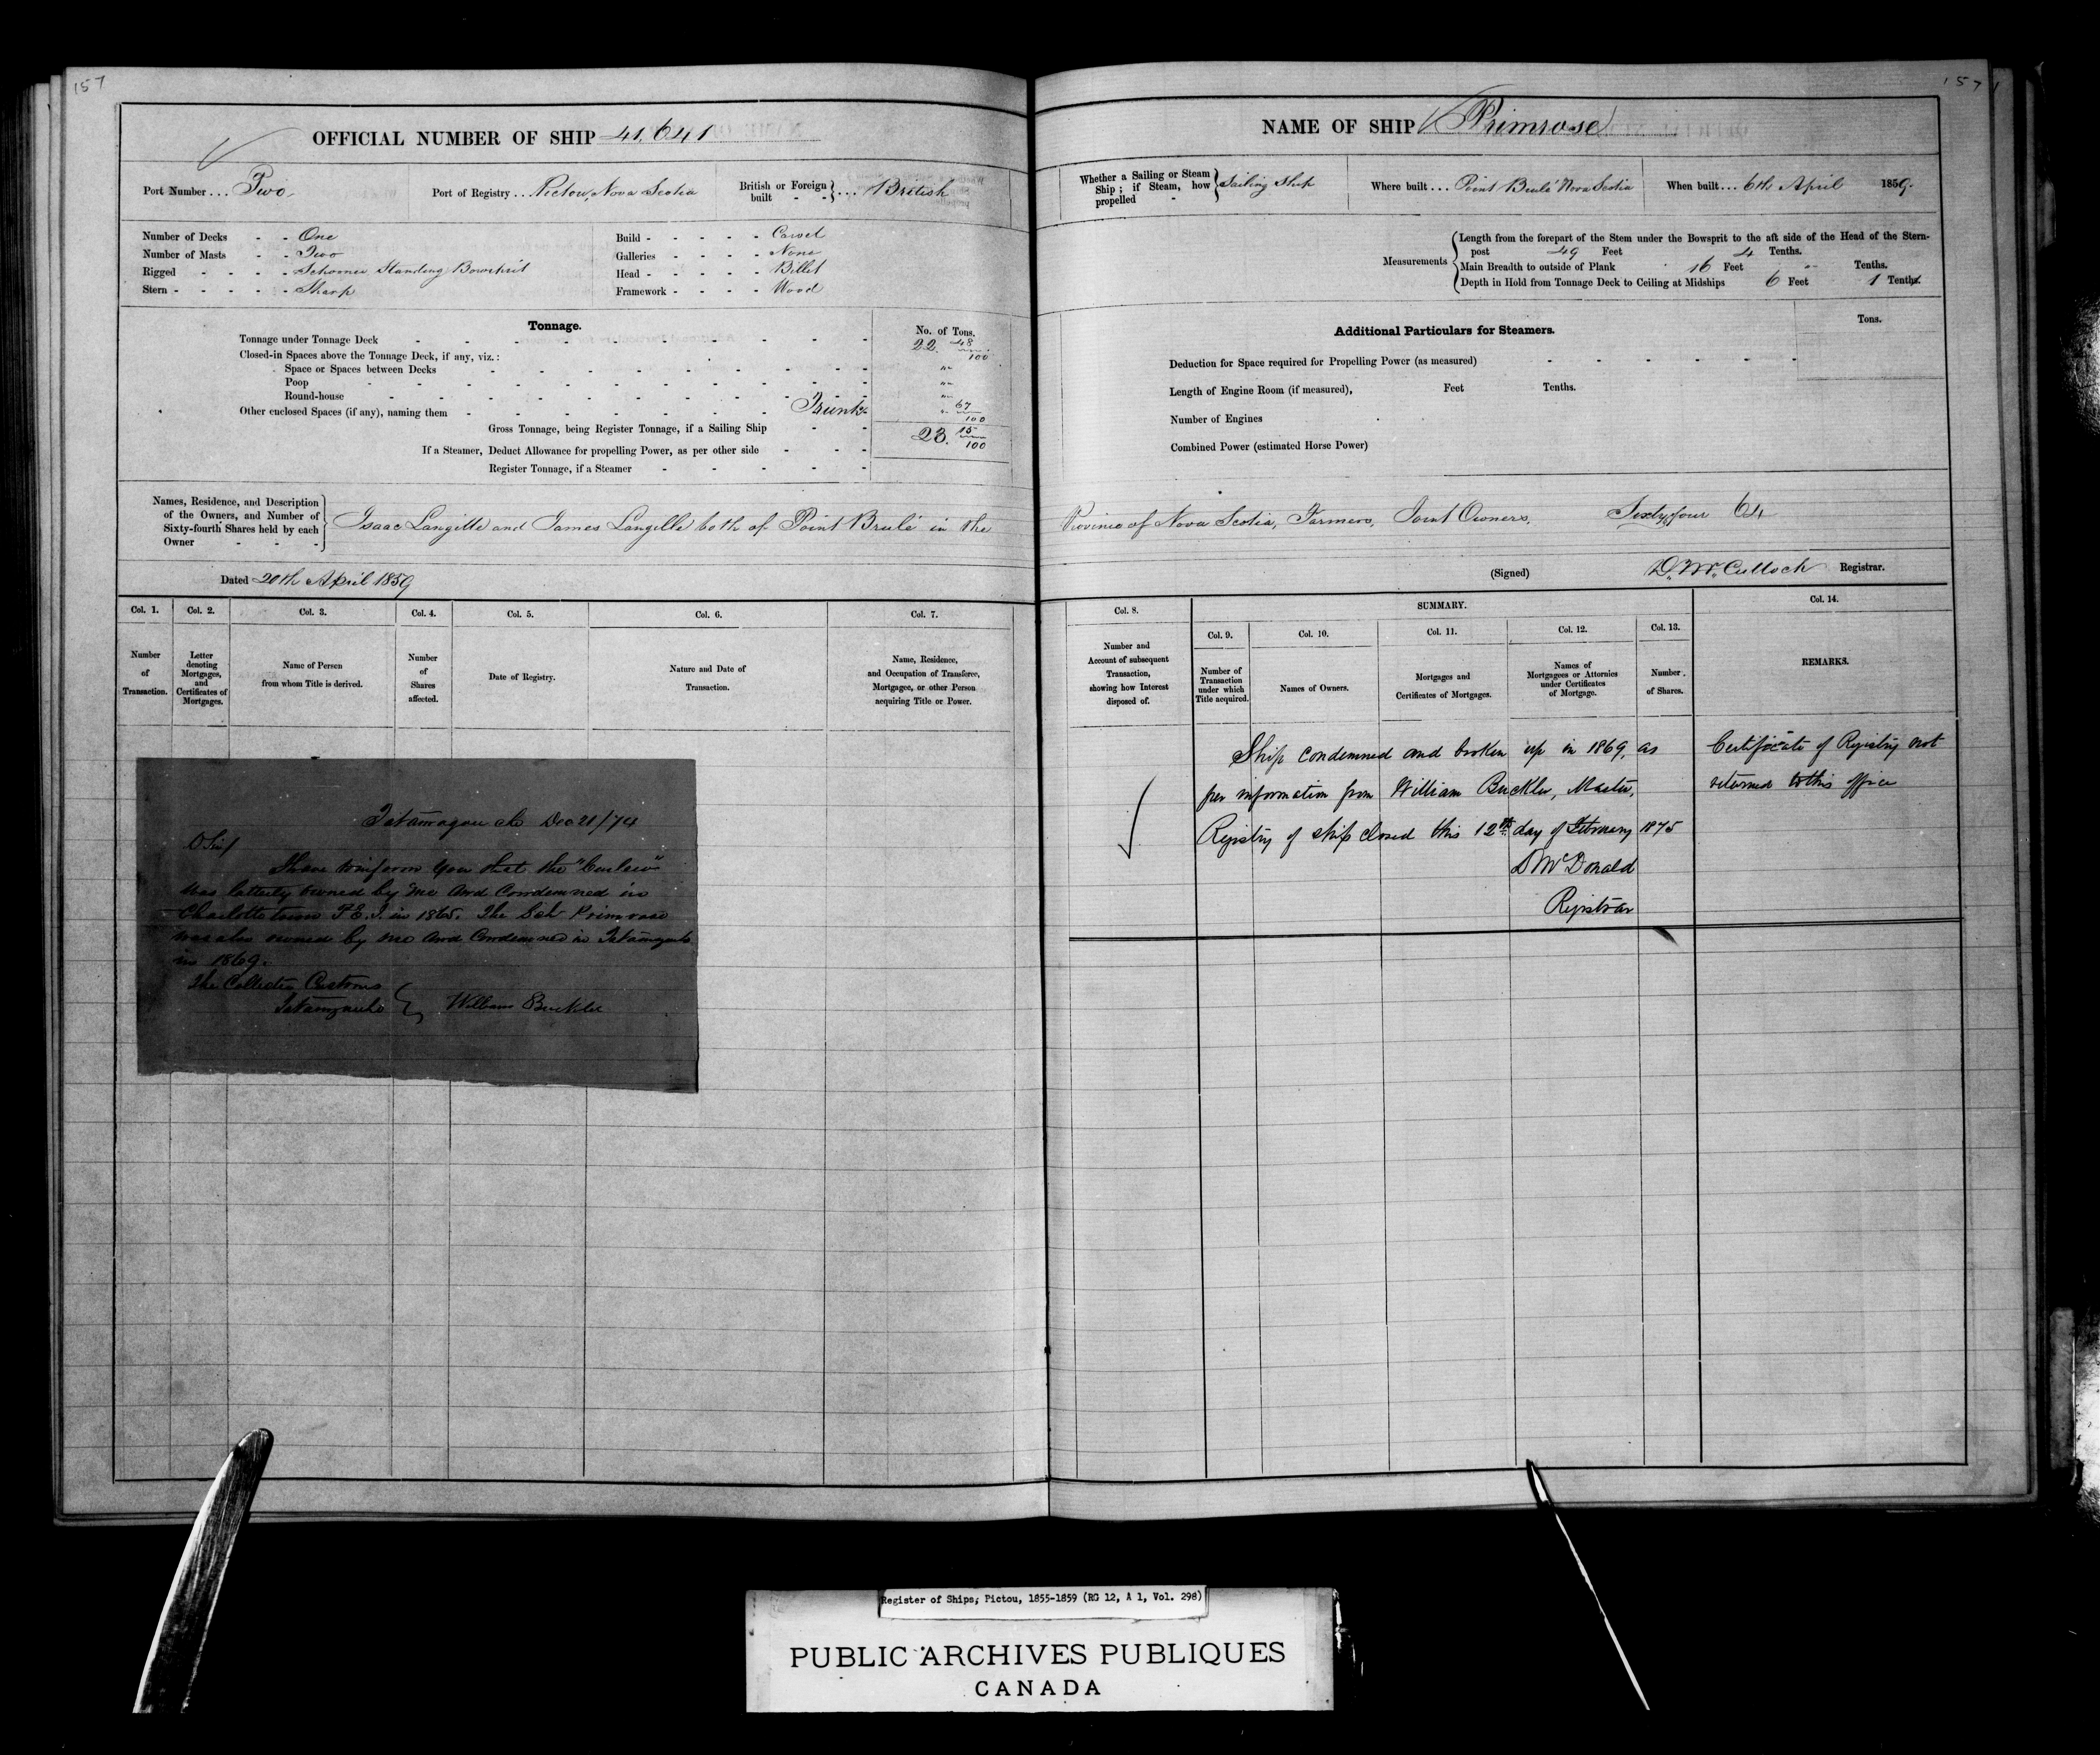 157
OFFICIAL NUMBER OF SHIP 41,641
Port Number ... Two
Port of Registry ... Pictou, Nova Scotia
British or Foreign built - - } ... British
Number of Decks - - One
Number of Masts - - Two
Rigged - - Schooner Standing Bowsprit
Stern - - - - - Sharp
Build - - - - - Carvel
Galleries - - - - None
Head - - - - - Billet
Framework - - - - Wood
Tonnage.
No. of Tons.
Tonnage under Tonnage Deck 22. 48/100
Closed-in Spaces above the Tonnage Deck, if any, viz.:
Space or Spaces between Decks "
Poop "
Round-house "
Other enclosed Spaces (if any), naming them Trunk " 67/100
Gross Tonnage, being Register Tonnage, if a Sailing Ship 23. 15/100
If a Steamer, Deduct Allowance for propelling Power, as per other side
Register Tonnage, if a Steamer
Names, Residence, and Description
of the Owners, and Number of
Sixty-fourth Shares held by each
Owner
Isaac Langille and James Langille both of Point Brulé in the
Dated 20th April 1859
Col. 1. Col. 2. Col. 3. Col. 4. Col. 5. Col. 6. Col. 7.
Number of Transaction.
Letter denoting Mortgages, and Certificates of Mortgages.
Name of Person from whom Title is derived.
Number of Shares affected.
Date of Registry.
Nature and Date of Transaction.
Name, Residence, and Occupation of Transferee, Mortgagee, or other Person acquiring Title or Power.
Dec 21/74
Sir/
I have to inform you that the
was latterly owned by me and Condemned in
Charlottetown P.E.I. in 1865. The Sch Primrose
was also owned by me and Condemned in
in 1869.
The Collector Customs
William Buckler
157
NAME OF SHIP Primrose
Whether a Sailing or Steam Ship; if Steam, how propelled - } Sailing Ship
Where built ... Point Brulé Nova Scotia
When built ... 6th April 1859.
Measurements
Length from the forepart of the Stem under the Bowsprit to the aft side of the Head of the Stern-
post 49 Feet 4 Tenths.
Main Breadth to outside of Plank 16 Feet " Tenths.
Depth in Hold from Tonnage Deck to Ceiling at Midships 6 Feet 1 Tenths.
Additional Particulars for Steamers.
Tons.
Deduction for Space required for Propelling Power (as measured)
Length of Engine Room (if measured), Feet Tenths.
Number of Engines
Combined Power (estimated Horse Power)
Province of Nova Scotia, Farmers, Joint Owners, Sixty four 64
(Signed) D. McCulloch Registrar.
Col. 8.
SUMMARY.
Col. 14.
Col. 9. Col. 10. Col. 11. Col. 12. Col. 13.
Number and Account of subsequent Transaction, showing how Interest disposed of.
Number of Transaction under which Title acquired.
Names of Owners.
Mortgages and Certificates of Mortgages.
Names of Mortgagees or Attornies under Certificates of Mortgage.
Number of Shares.
REMARKS.
Ship condemned and broken up in 1869, as
per information from William Buckler, Master,
Registry of ship closed this 12th day of February 1875
D McDonald
Registrar
Certificate of Registry not
returned to this office
Register of Ships; Pictou, 1855-1859 (RG 12, A 1, Vol. 298)
PUBLIC ARCHIVES PUBLIQUES
CANADA